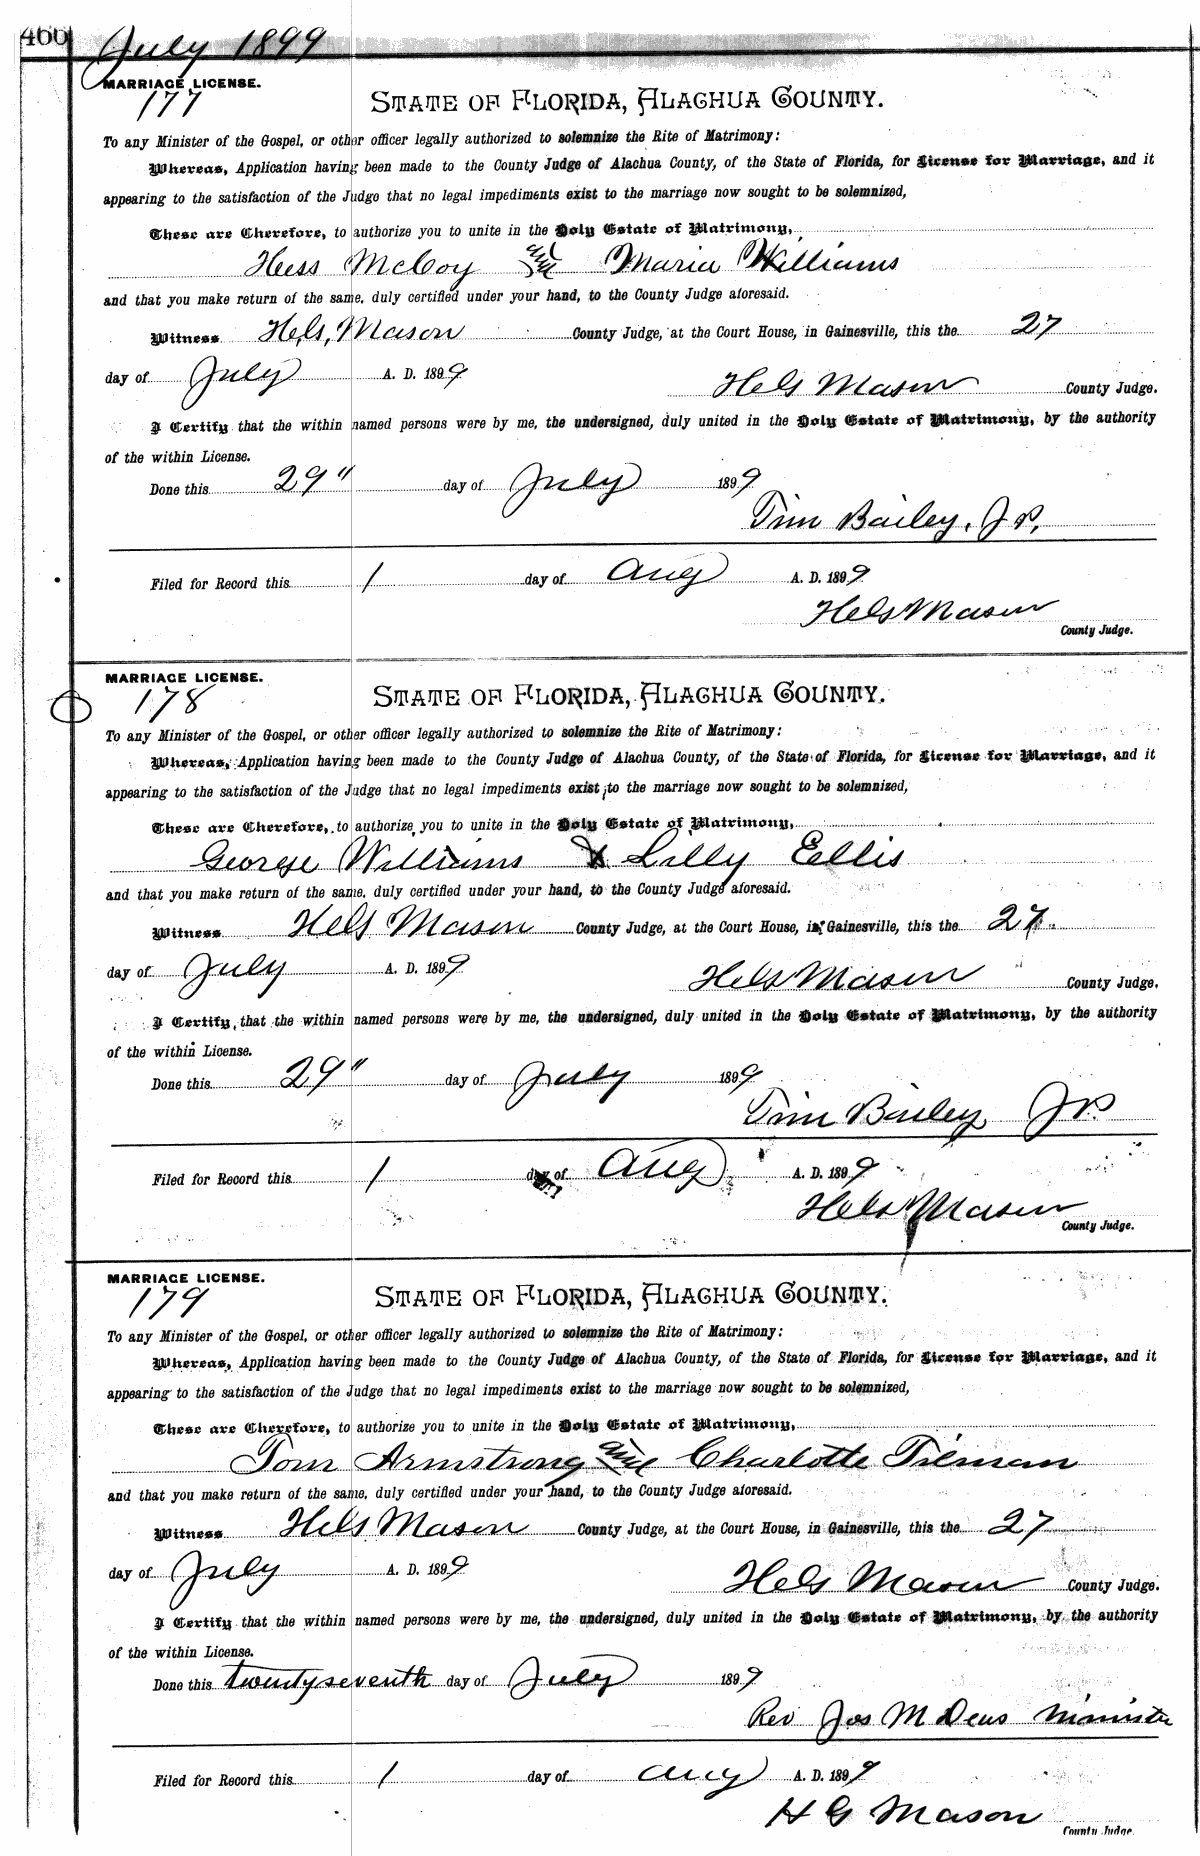 466 July 1899
MARRIAGE LICENSE.
177
STATE OF FLORIDA, ALACHUA COUNTY.
To any Minister of the Gospel, or other officer legally authorized to solemnize the Rite of Matrimony:
Whereas, Application having been made to the County Judge of Alachua County, of the State of Florida, for License for Marriage, and it
appearing to the satisfaction of the Judge that no legal impediments exist to the marriage now sought to be solemnized,
These are Therefore, to authorize you to unite in the Holy Estate of Matrimony,
Hess McCoy and Maria Williams
and that you make return of the same, duly certified under your hand, to the County Judge aforesaid.
Witness H. G. Mason County Judge, at the Court House, in Gainesville, this the 27
day of July A. D. 1899 H. G. Mason County Judge.
I Certify that the within named persons were by me, the undersigned, duly united in the Holy Estate of Matrimony, by the authority
of the within License.
Done this 29" day of July 1899
Tim Bailey, J.P.
Filed for Record this 1 day of Aug A. D. 1899
H G Mason
County Judge.
MARRIAGE LICENSE.
178
STATE OF FLORIDA, ALACHUA COUNTY.
To any Minister of the Gospel, or other officer legally authorized to solemnize the Rite of Matrimony:
Whereas, Application having been made to the County Judge of Alachua County, of the State of Florida, for License for Marriage, and it
appearing to the satisfaction of the Judge that no legal impediments exist to the marriage now sought to be solemnized,
These are Therefore, to authorize you to unite in the Holy Estate of Matrimony,
George Williams & Lilly Ellis
and that you make return of the same, duly certified under your hand, to the County Judge aforesaid.
Witness H G Mason County Judge, at the Court House, in Gainesville, this the 27
day of July A. D. 1899 H G Mason County Judge.
I Certify, that the within named persons were by me, the undersigned, duly united in the Holy Estate of Matrimony, by the authority
of the within License.
Done this 29" day of July 1899
Tim Bailey JP
Filed for Record this 1 day of Aug A. D. 1899
H G Mason
County Judge.
MARRIAGE LICENSE.
179
STATE OF FLORIDA, ALACHUA COUNTY.
To any Minister of the Gospel, or other officer legally authorized to solemnize the Rite of Matrimony:
Whereas, Application having been made to the County Judge of Alachua County, of the State of Florida, for License for Marriage, and it
appearing to the satisfaction of the Judge that no legal impediments exist to the marriage now sought to be solemnized,
These are Therefore, to authorize you to unite in the Holy Estate of Matrimony,
Tom Armstrong and Charlotte Tilman
and that you make return of the same, duly certified under your hand, to the County Judge aforesaid.
Witness H G Mason County Judge, at the Court House, in Gainesville, this the 27
day of July A. D. 1899 H G Mason County Judge.
I Certify that the within named persons were by me, the undersigned, duly united in the Holy Estate of Matrimony, by the authority
of the within License.
Done this twentyseventh day of July 1899
Rev Jos M Deus Minister
Filed for Record this 1 day of Aug A. D. 1899
H G Mason
County Judge.